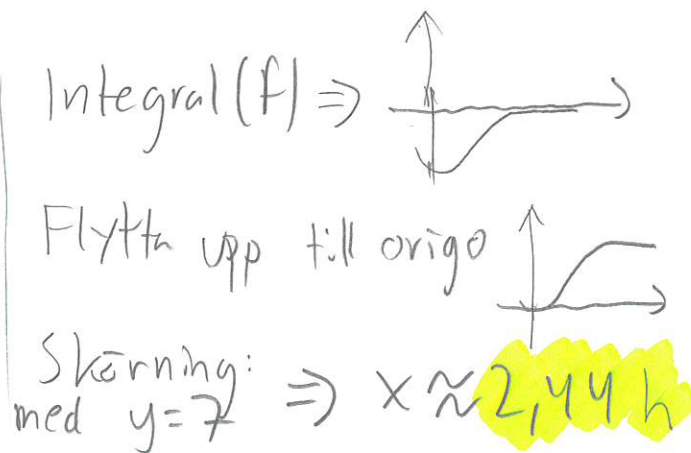 Integral(f) ⇒
Flytta upp till origo
Skärning:
med y=7 ⇒ x ≈ 2,44 h